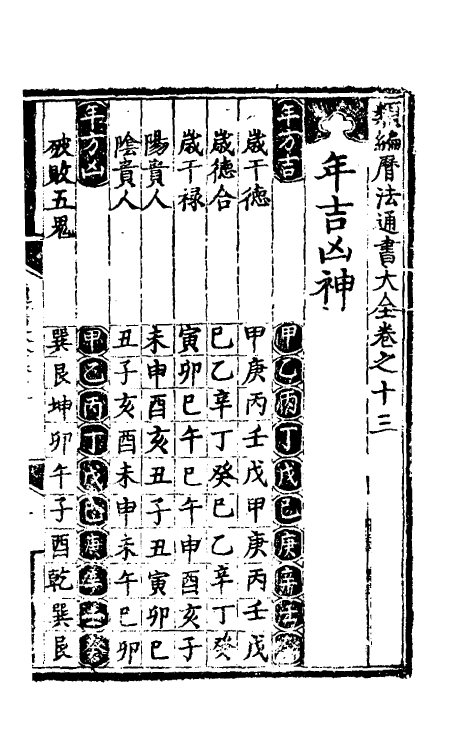 類編曆法通書大全卷之十三
年吉凶神
年方吉 甲乙丙丁戊己庚辛壬
歲干德 甲庚丙壬戊甲庚丙壬戊
歲德合 巳乙辛丁癸巳乙辛丁癸
歲干禄 寅卯巳午巳午申酉亥子
陽貴人 未申酉亥丑子丑寅卯巳
陰貴人 丑子亥酉未申未午巳卯
年方凶 甲乙丙丁戊己庚辛壬癸
破敗五鬼 巽艮坤卯午子酉乾巽艮